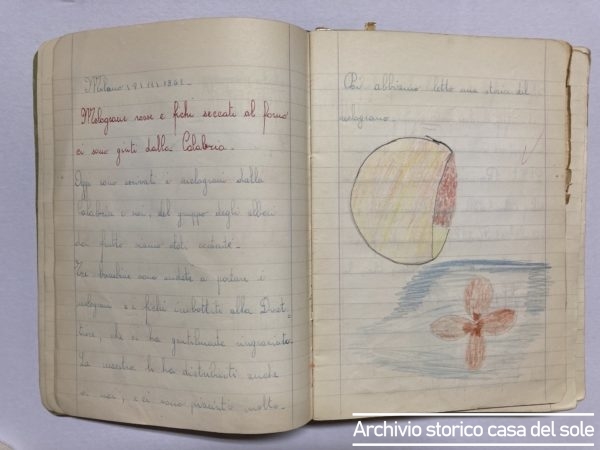 Milano 1961
Melograni rosse e fichi seccati al forno
ci sono giunti dalla Calabria.
Oggi sono arrivati i melograni dalla
Calabria e noi, del gruppo degli alberi
da frutto siamo stati
Tre bambine sono andate a portare i
melograni e i fichi imbottiti alla Diret-
trice, che ci ha gentilmente ringraziato.
La maestra li ha distribuiti anche
a noi, e ci sono piaciuti molto.
Poi abbiamo letto una storia del
melograno.
Archivio storico casa del sole